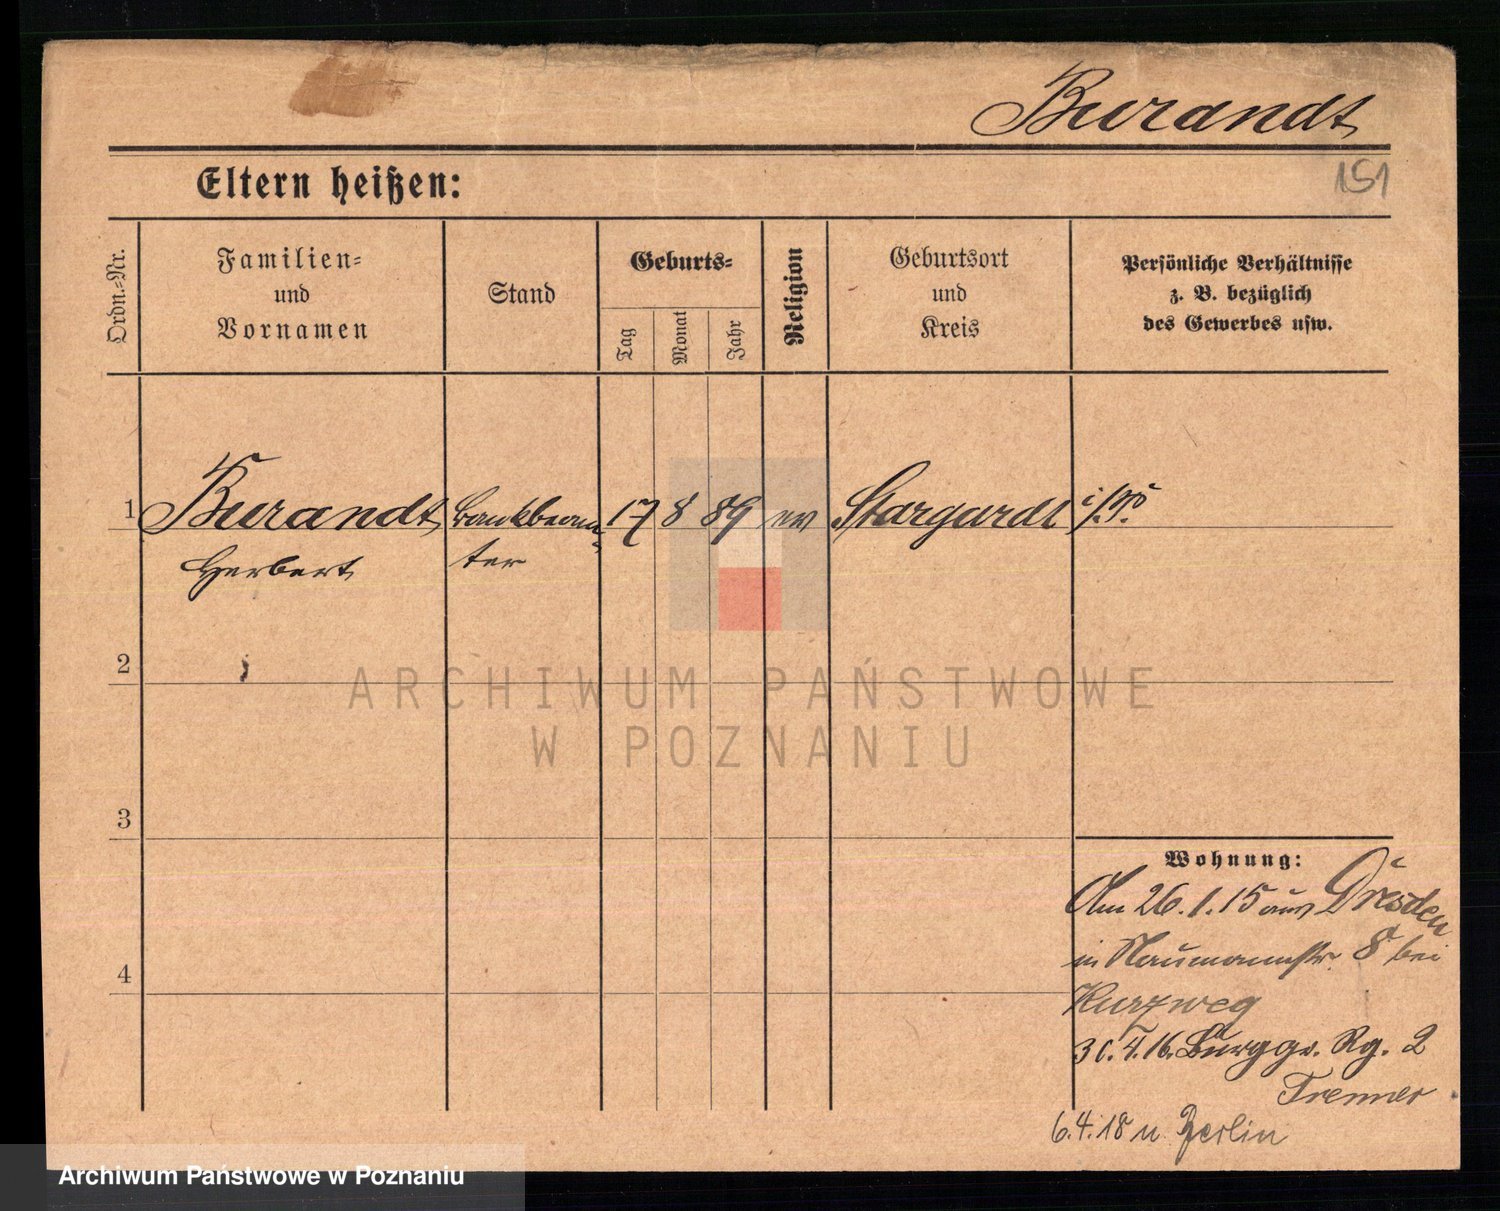 Burandt
151
Eltern heißen:
Ordn.-Nr.
Familien-
und
Vornamen
Stand
Geburts-
Tag
Monat
Jahr
Religion
Geburtsort
und
Kreis
Persönliche Verhältnisse
z. B. bezüglich
des Gewerbes usw.
1 Burandt Bankbeam- 17 8 89 ev Stargardt i/P.
Herbert ter
2
3
4
ARCHIWUM PAŃSTWOWE
W POZNANIU
Wohnung:
Am 26.1.15 aus Dresden
in Naumannstr. 8 bei
Kurzweg
30.4.16. Burggr. Rg. 2
Tremmer
6.4.18 n Berlin
Archiwum Państwowe w Poznaniu